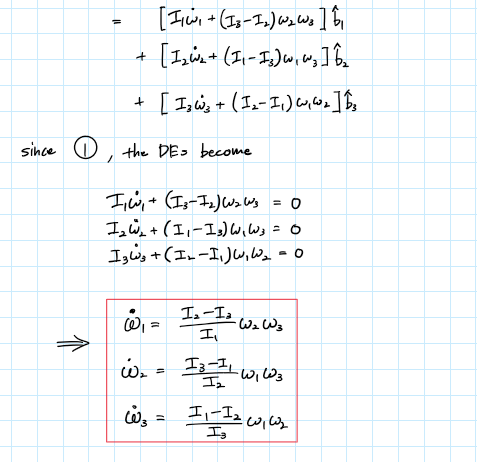 = [I₁ω̇₁ + (I₃-I₂)ω₂ω₃] b̂₁
+ [I₂ω̇₂ + (I₁-I₃)ω₁ω₃] b̂₂
+ [I₃ω̇₃ + (I₂-I₁)ω₁ω₂] b̂₃
since ①, the DEs become
I₁ω̇₁ + (I₃-I₂)ω₂ω₃ = 0
I₂ω̇₂ + (I₁-I₃)ω₁ω₃ = 0
I₃ω̇₃ + (I₂-I₁)ω₁ω₂ = 0
⇒ ω̇₁ = (I₂-I₃)/I₁ ω₂ω₃
ω̇₂ = (I₃-I₁)/I₂ ω₁ω₃
ω̇₃ = (I₁-I₂)/I₃ ω₁ω₂